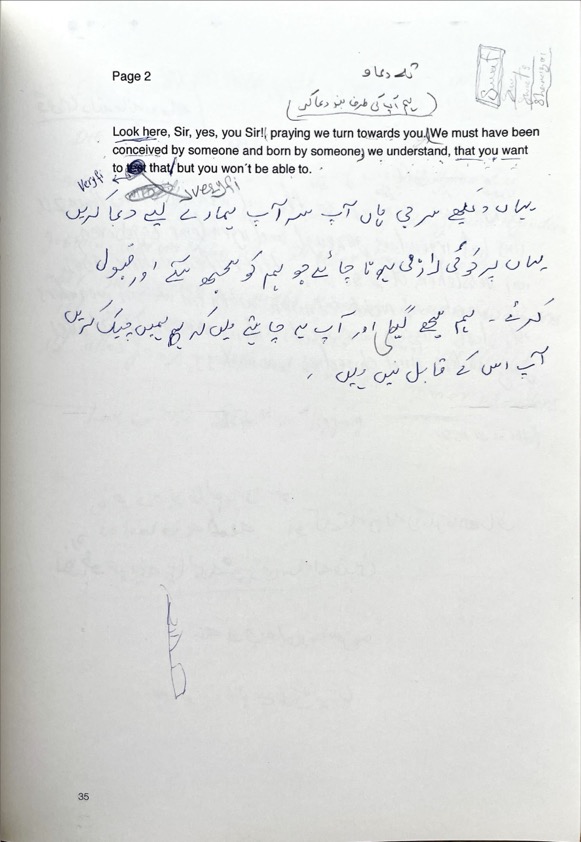 Page 2
تک دعا و
ہم آپ کی طرف منہ دعا کر
Swat
Look here, Sir, yes, you Sir!, praying we turn towards you. We must have been
conceived by someone and born by someone, we understand, that you want
to that, but you won´t be able to.
veryfi
veryfi
یہاں دیکھے سر جی ہاں آپ سر آپ ہمارے لیے دعا کریں
یہاں پر کوئی لازمی ہونا چائے جو ہم کو سمجھ سکے اور قبول
کرئے۔ ہم سمجھ گیے اور آپ یہ چاہتے ہیں کہ ہمیں چیک کریں
آپ اس کے قابل نہیں ہیں۔
35